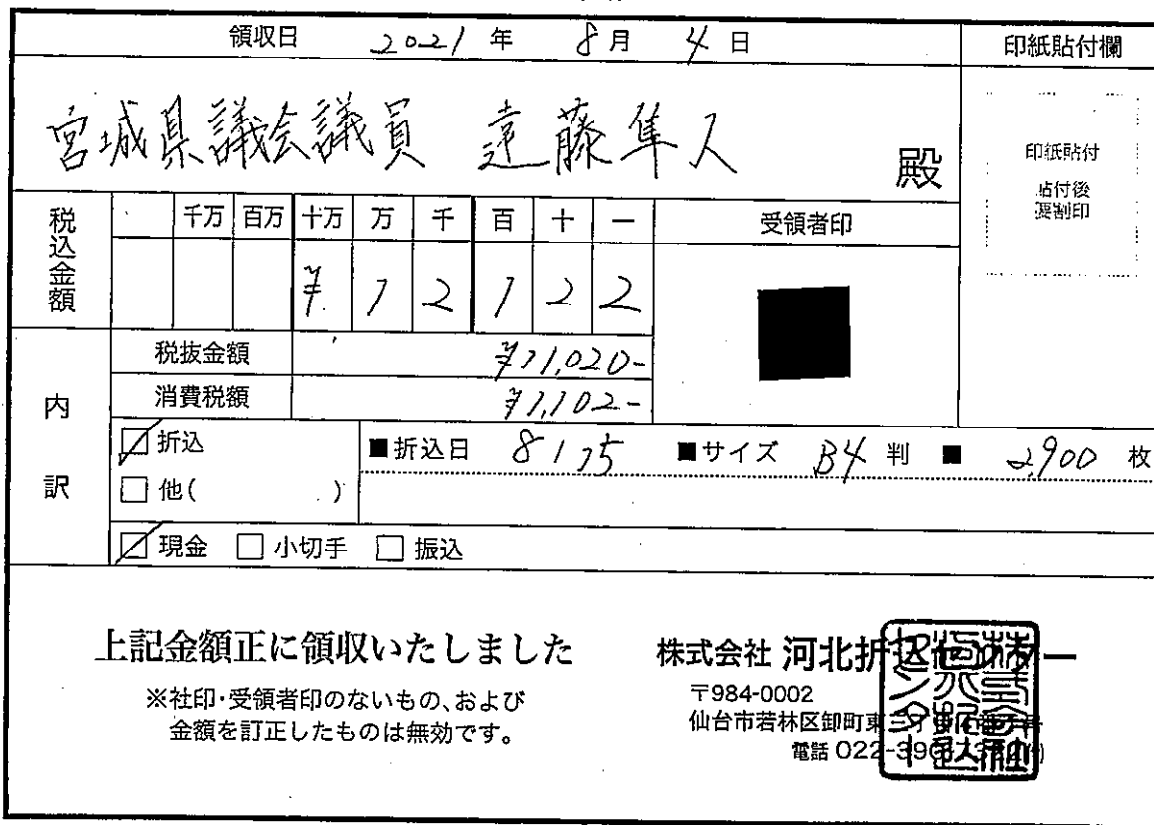 領収日 2021 年 8 月 4 日
印紙貼付欄
宮城県議会議員 遠藤隼人 殿
印紙貼付
貼付後
要割印
税込金額
千万 百万 十万 万 千 百 十 一
¥ 1 2 1 2 2
受領者印
内訳
税抜金額 ¥11,020-
消費税額 ¥1,102-
☑ 折込
■折込日 8/ ■サイズ B4 判 ■ 2,900 枚
□ 他( )
☑ 現金 □ 小切手 □ 振込
上記金額正に領収いたしました
※社印・受領者印のないもの、および
金額を訂正したものは無効です。
株式会社 河北折込センター
〒984-0002
仙台市若林区卸町東
電話 022-39
株式会社河北折込センター